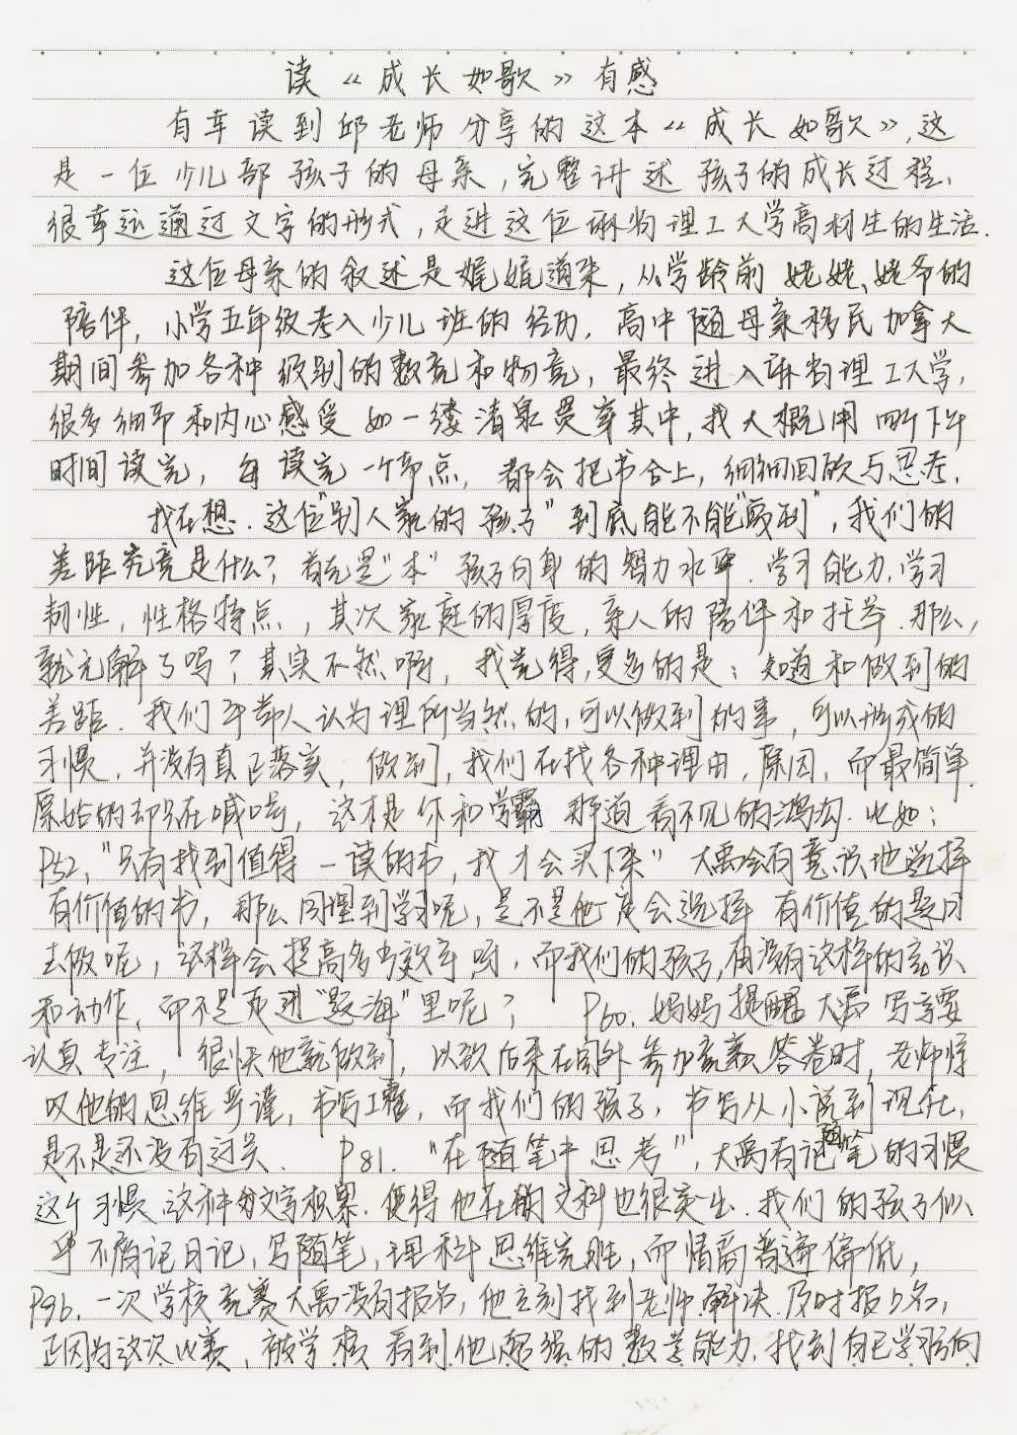 读《成长如歌》有感
有幸读到邱老师分享的这本《成长如歌》,这
是一位少儿部孩子的母亲,完整讲述孩子的成长过程.
很幸运通过文字的形式,走进这位麻省理工大学高材生的生活.
这位母亲的叙述是娓娓道来,从学龄前姥姥、姥爷的
陪伴,小学五年级考入少儿班的经历.高中随母亲移民加拿大
期间参加各种级别的数竞和物竞,最终进入麻省理工大学,
很多细节和内心感受如一缕清泉贯穿其中,我大概用两个下午
时间读完,每读完一个节点,都会把书合上,细细回味与思考.
我在想.这位"别人家的孩子"到底能不能"复制",我们的
差距究竟是什么?首先是"本"孩子自身的智力水平.学习能力.学习
韧性,性格特点,其次家庭的厚度,亲人的陪伴和托举.那么,
就无解了吗?其实不然啊,我觉得,更多的是:知道和做到的
差距.我们平常人认为理所当然的,可以做到的事,可以形成的
习惯,并没有真正落实,做到,我们在找各种理由,原因,而最简单.
原始的却只在喊口号,这才是你和学霸那道看不见的鸿沟.比如:
P52,"只有找到值得一读的书,我才会买下来"大禹会有意识地选择
有价值的书,那么同理到学习呢,是不是他一定会选择有价值的题目
去做呢,这样会提高多少效率啊.而我们的孩子,有没有这样的意识
和动作,而不是走进"题海"里呢? P60.妈妈提醒大禹写字要
认真专注,很快他就做到,以致后来在国外参加竞赛答卷时,老师惊
叹他的思维严谨,书写工整,而我们的孩子,书写从小说到现在,
是不是还没有过关. P81."在随笔中思考",大禹有记随笔的习惯
这个习惯这种文字积累.使得他在文科也很突出.我们的孩子似
乎不屑记日记,写随笔,理科思维完胜,而情商普遍偏低,
P96.一次学校竞赛大禹没有报名,他立刻找到老师解决.及时报了名,
正因为这次比赛,被学校看到他超强的数学能力.找到自己学习的